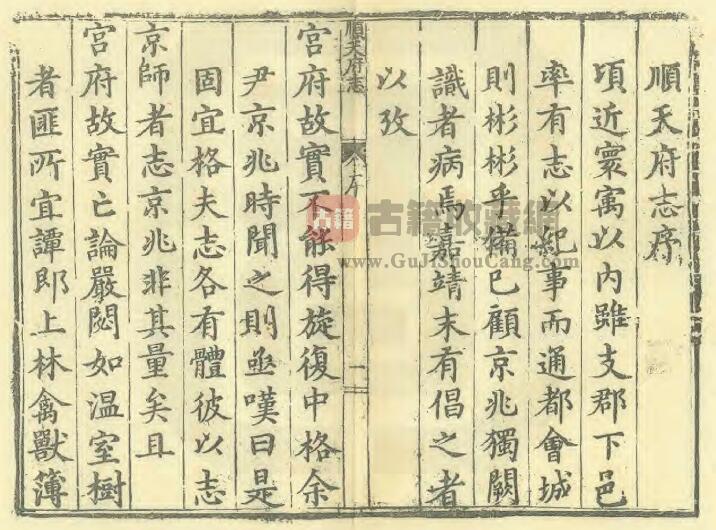 順天府志序
頃近寰㝢以内雖支郡下邑
率有志以紀事而通都會城
則彬彬乎備已顧京兆獨闕
識者病焉嘉靖末有倡之者
以攷
順天府志
序
一
宮府故實不能得旋復中格余
尹京兆時聞之則亟嘆曰是
固宜格夫志各有體彼以志
京師者志京兆非其量矣且
宮府故實亡論嚴閟如温室樹
者匪所宜譚卽上林禽獸簿
古籍
古籍收藏網
www.GuJiShouCang.com